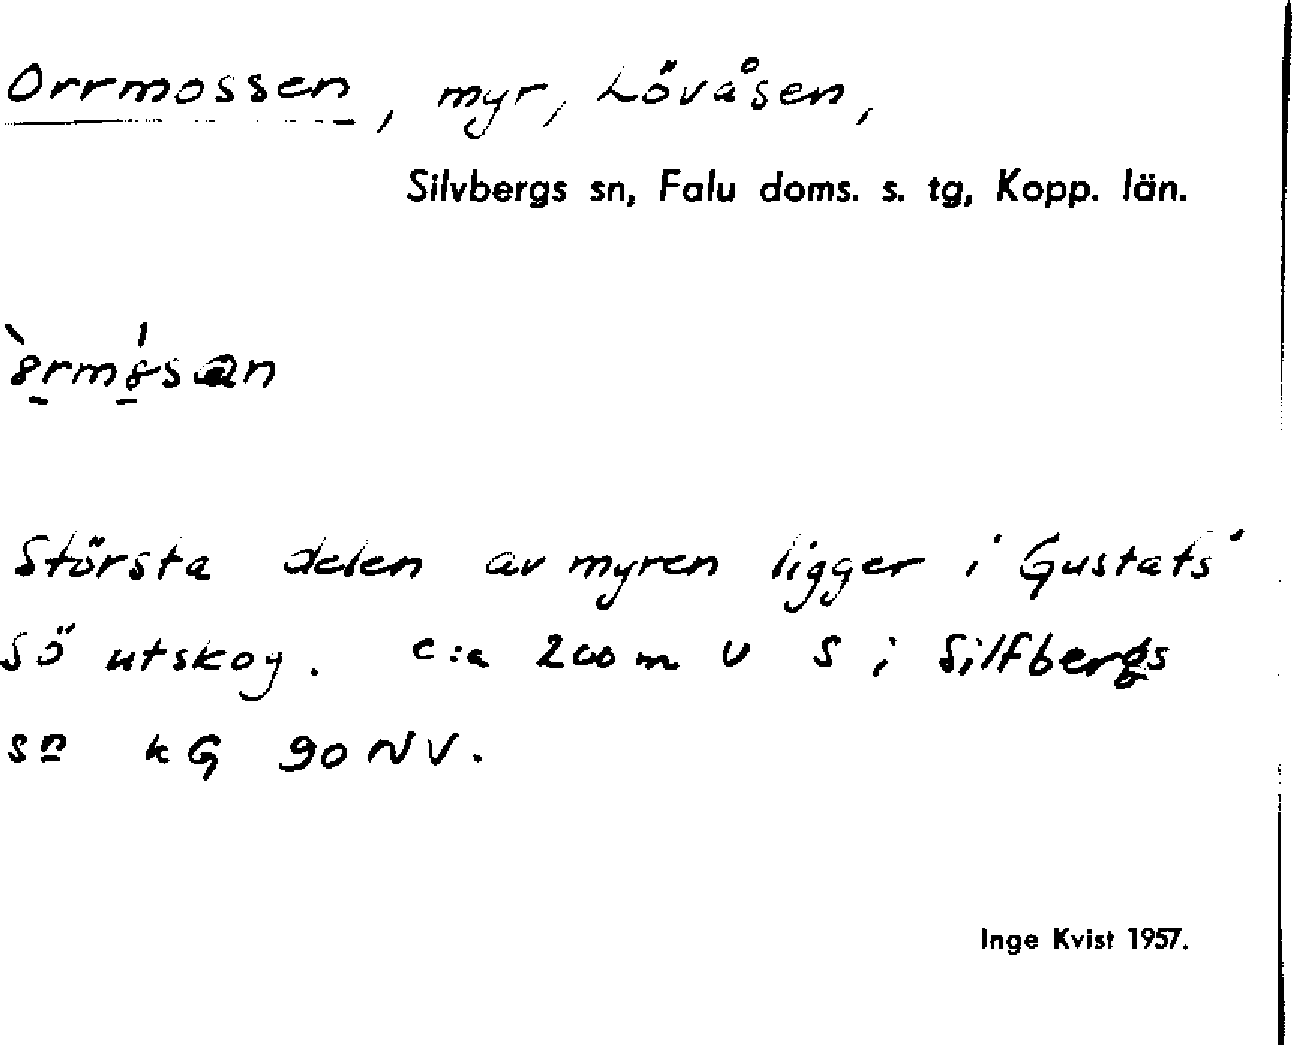 Orrmossen, myr, Lövåsen,
Silvbergs sn, Falu doms. s. tg, Kopp. län.
Största delen av myren ligger i Gustafs'
SÖ utskog. c:a 200 m V S i Silfbergs
sn kG 90 NV.
Inge Kvist 1957.